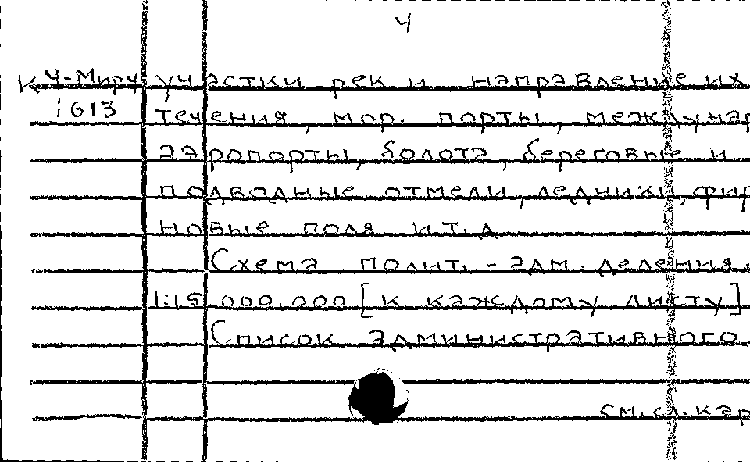 4
К 4-Мир4 участки рек и направление их
1613 течения, мор. порты, междунар
аэропорты, болота, береговые и
подводные отмели, ледники, фир
новые поля и т.д
Схема полит.-адм. деления.
1:15 000 000 [к каждому листу]
Список административного
см. сл. кар